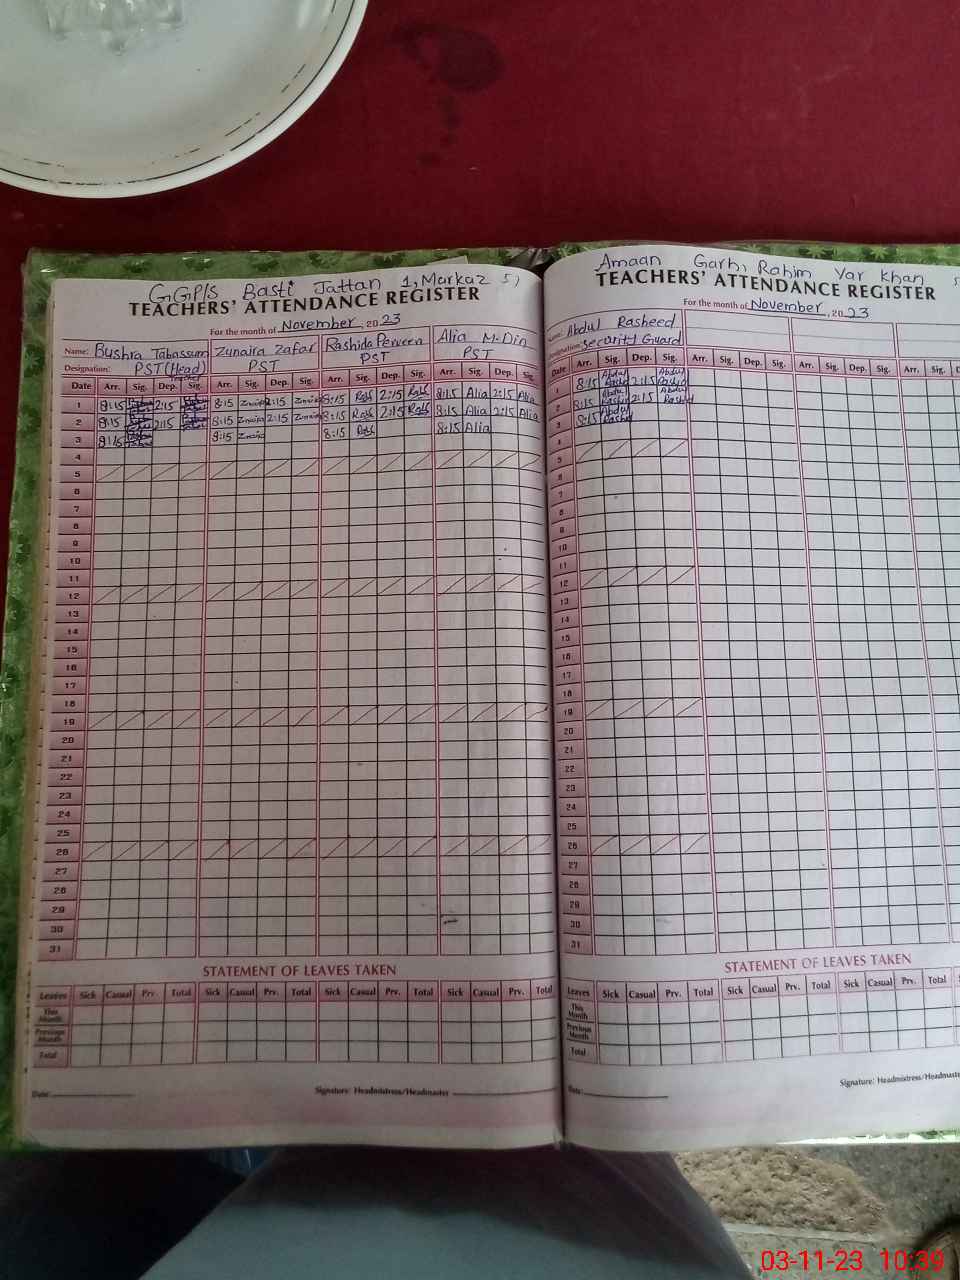 GGP/S Basti Jattan 1, Markaz 5,
TEACHERS' ATTENDANCE REGISTER
For the month of November, 2023
Name: Bushra Tabassum Zunaira Zafar Rashida Perveen Alia M-Din
Designation: PST (Head) PST PST PST
Date Arr. Sig. Dep. Sig. Arr. Sig. Dep. Sig. Arr. Sig. Dep. Sig. Arr. Sig. Dep. Sig.
1 8:15 2:15 8:15 Zunaira 2:15 Zunaira 8:15 2:15 8:15 Alia 2:15 Alia
2 8:15 2:15 8:15 Zunaira 2:15 Zunaira 8:15 2:15 8:15 Alia 2:15 Alia
3 8:15 8:15 Zunaira 8:15 8:15 Alia
4
5
6
7
8
9
10
11
12
13
14
15
16
17
18
19
20
21
22
23
24
25
26
27
28
29
30
31
STATEMENT OF LEAVES TAKEN
Leaves Sick Casual Prv. Total Sick Casual Prv. Total Sick Casual Prv. Total Sick Casual Prv. Total
This Month
Previous Month
Total
Date: Signature: Headmistress/Headmaster
Amaan Garh, Rahim Yar Khan
TEACHERS' ATTENDANCE REGISTER
For the month of November, 2023
Name: Abdul Rasheed
Designation: Security Guard
Date Arr. Sig. Dep. Sig. Arr. Sig. Dep. Sig. Arr. Sig. Dep. Sig. Arr. Sig.
1 8:15 Abdul Rashid 2:15 Abdul Rashid
2 8:15 Abdul Rashid 2:15 Abdul Rashid
3 8:15 Abdul Rashid
4
5
6
7
8
9
10
11
12
13
14
15
16
17
18
19
20
21
22
23
24
25
26
27
28
29
30
31
STATEMENT OF LEAVES TAKEN
Leaves Sick Casual Prv. Total Sick Casual Prv. Total Sick Casual Prv. Total
This Month
Previous Month
Total
Date: Signature: Headmistress/Headmaste
03-11-23 10:39